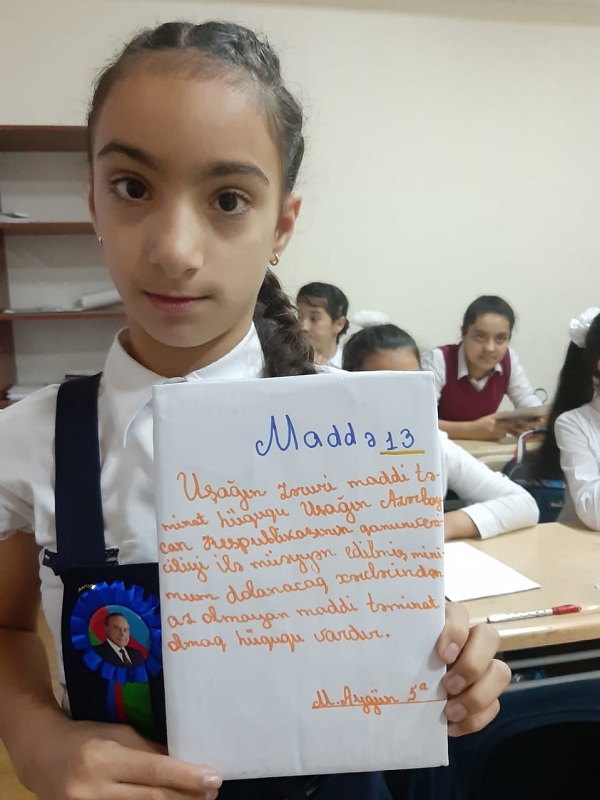 Maddə 13
Uşağın zəruri maddi tə-
minat hüququ Uşağın Azərbay-
can Respublikasının qanunveri-
ciliyi ilə müəyyən edilmiş mini
mum dolanacaq xərclərindən
az olmayan maddi təminat
almaq hüququ vardır.
M. Aygün 5ᵃ